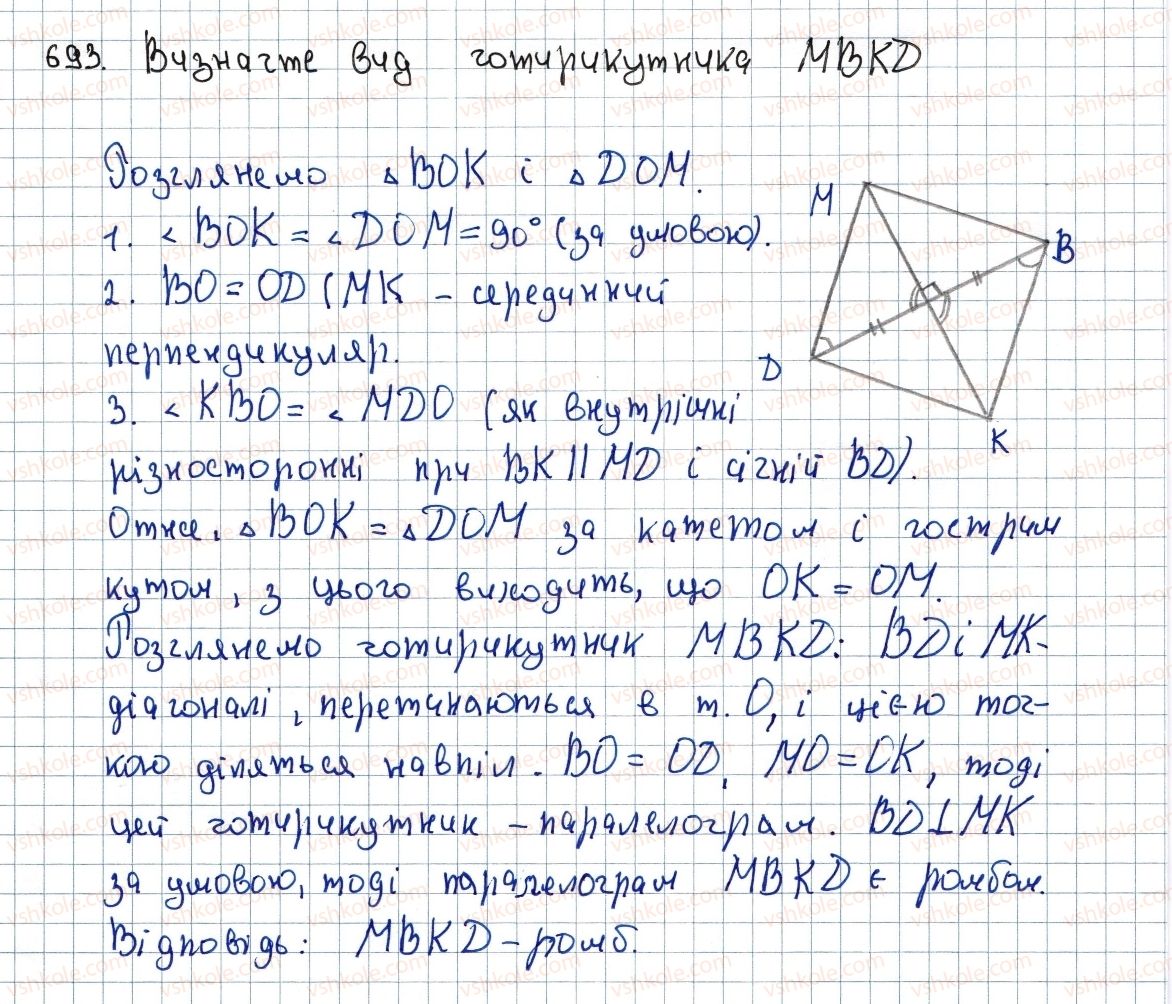 693. Визначте вид чотирикутника MBKD
Розглянемо △BOK і △DOM.
1. ∠BOK = ∠DOM = 90° (за умовою).
2. BO = OD (MK – серединний
перпендикуляр.
3. ∠KBO = ∠MDO (як внутрішні
різносторонні при BK || MD і січній BD).
Отже, △BOK = △DOM за катетом і гострим
кутом, з цього виходить, що OK = OM.
Розглянемо чотирикутник MBKD: BD і MK-
діагоналі, перетинаються в т. O, і цією точ-
кою діляться навпіл. BO = OD, MO = OK, тоді
цей чотирикутник – паралелограм. BD⊥MK
за умовою, тоді паралелограм MBKD є ромбом.
Відповідь: MBKD – ромб.
M
B
D
K